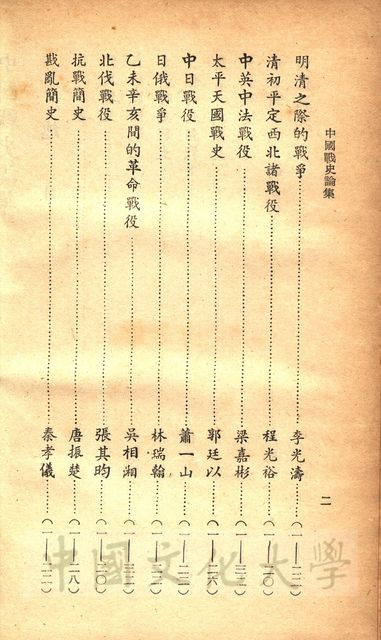 中國戰史論集
二
明清之際的戰爭……李光濤……(一——二二)
清初平定西北諸戰役……程光裕……(一——二〇)
中英中法戰役……梁嘉彬……(一——一二)
太平天國戰史……郭廷以……(一——二六)
中日戰役……蕭一山……(一——二二)
日俄戰爭……林瑞翰……
乙未辛亥間的革命戰役……吳相湘……
北伐戰役……張其昀……(一——二〇)
抗戰簡史……唐振楚……(一——二八)
戡亂簡史……秦孝儀……(一——一二)
中國文化大學